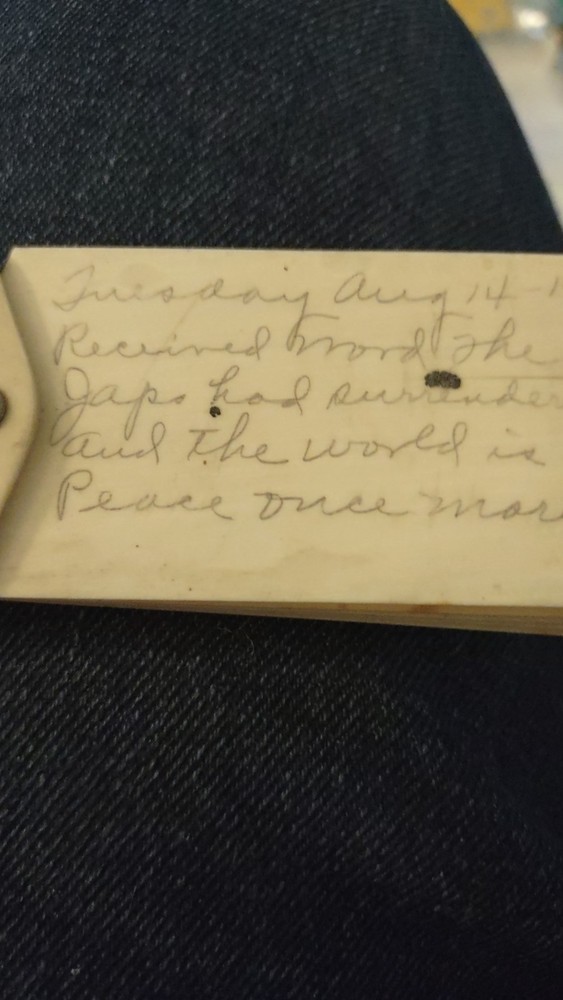 Tuesday Aug 14-1
Received Word The
Japs had surrender
and the world is
Peace once more